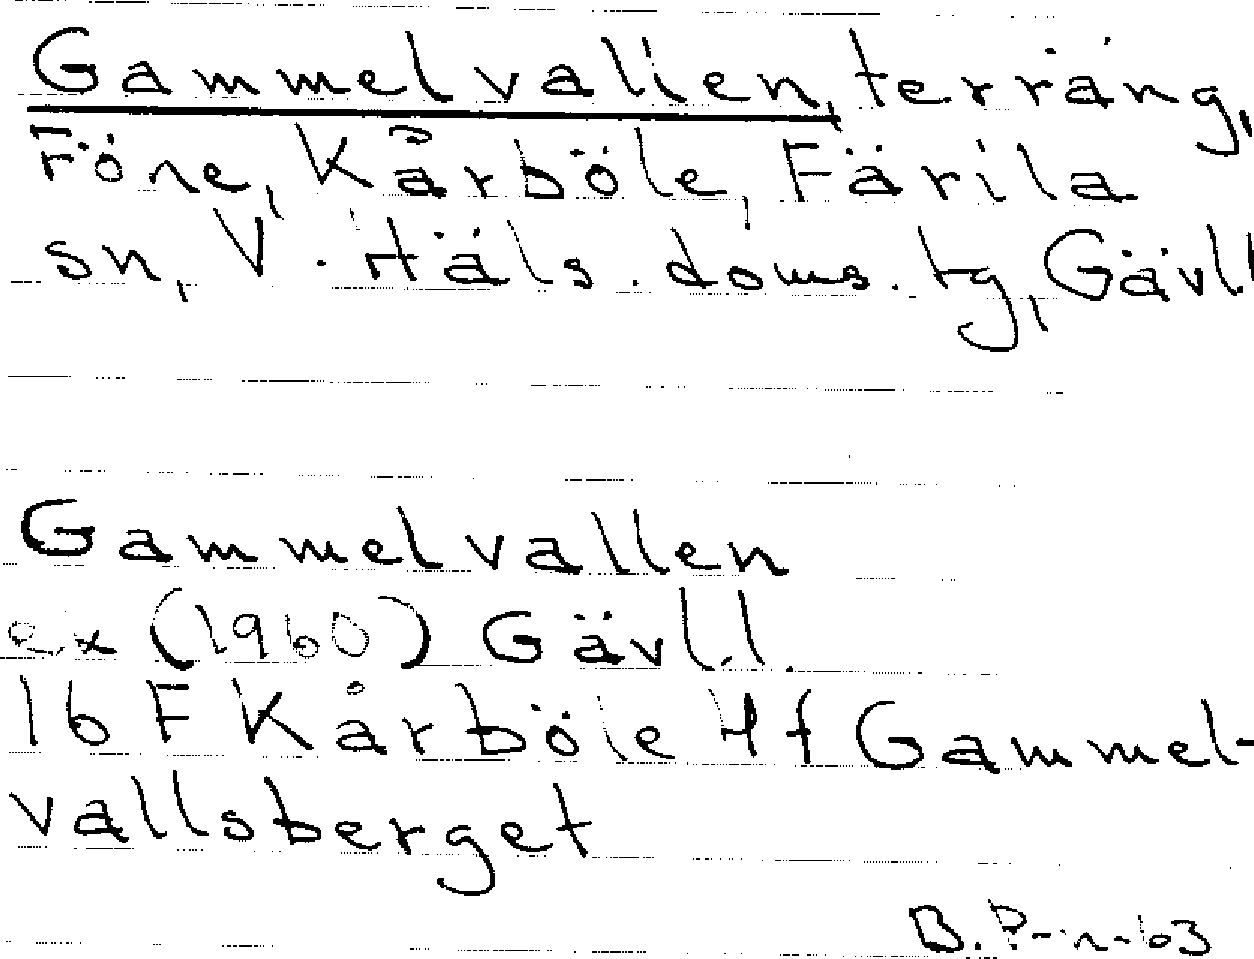 Gammelvallen, terräng,
Föne, Kårböle, Färila
sn, V. Häls. doms. tg, Gävl.l
Gammelvallen
ex (1960) Gävl.l.
16 F Kårböle 4f Gammel-
vallsberget
B. P-n-63